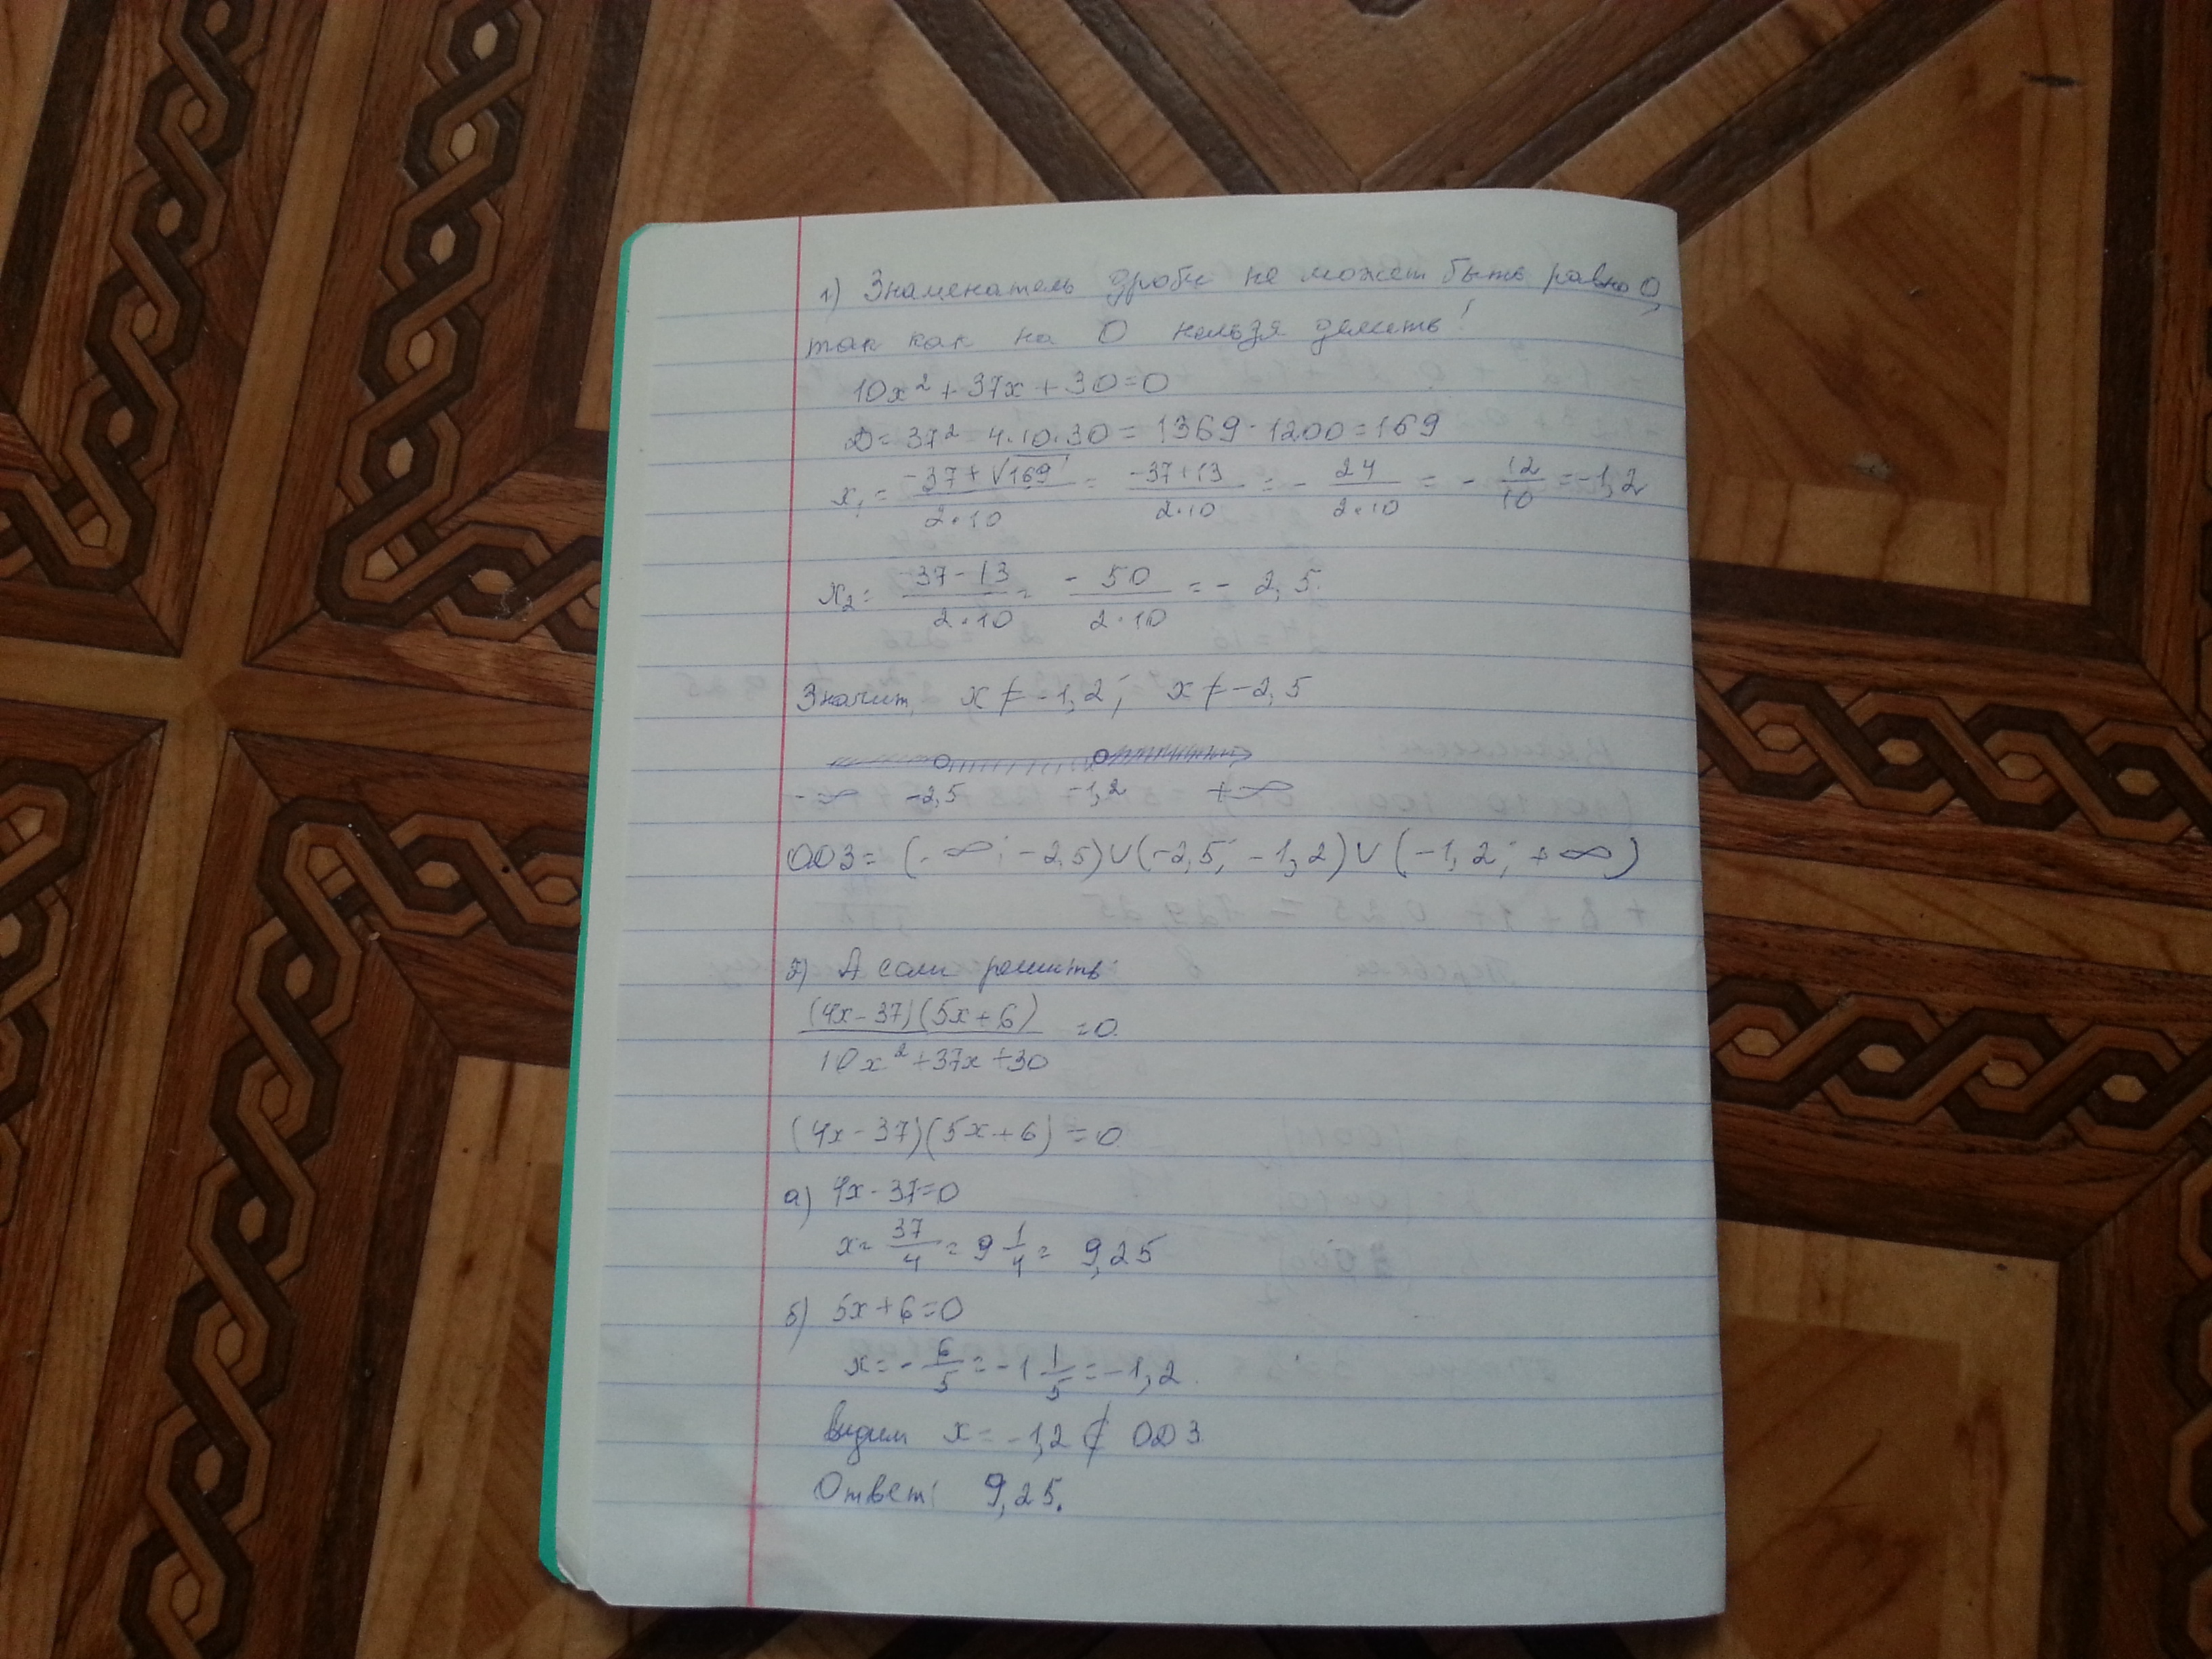 1) Знаменатель дроби не может быть равно 0,
так как на 0 нельзя делить!
10x² + 37x + 30 = 0
D = 37² - 4·10·30 = 1369 - 1200 = 169
x₁ = (-37 + √169)/(2·10) = (-37+13)/(2·10) = - 24/(2·10) = - 12/10 = -1,2
x₂ = (-37 - 13)/(2·10) = - 50/(2·10) = - 2,5.
Значит, x ≠ -1,2; x ≠ -2,5
-∞ -2,5 -1,2 +∞
ОДЗ = (-∞; -2,5) ∪ (-2,5; -1,2) ∪ (-1,2; +∞)
2) А если решить:
(4x - 37)(5x + 6)/(10x² + 37x + 30) = 0.
(4x - 37)(5x + 6) = 0
а) 4x - 37 = 0
x = 37/4 = 9 1/4 = 9,25
б) 5x + 6 = 0
x = - 6/5 = -1 1/5 = -1,2.
Видим x = -1,2 ∉ ОДЗ
Ответ: 9,25.